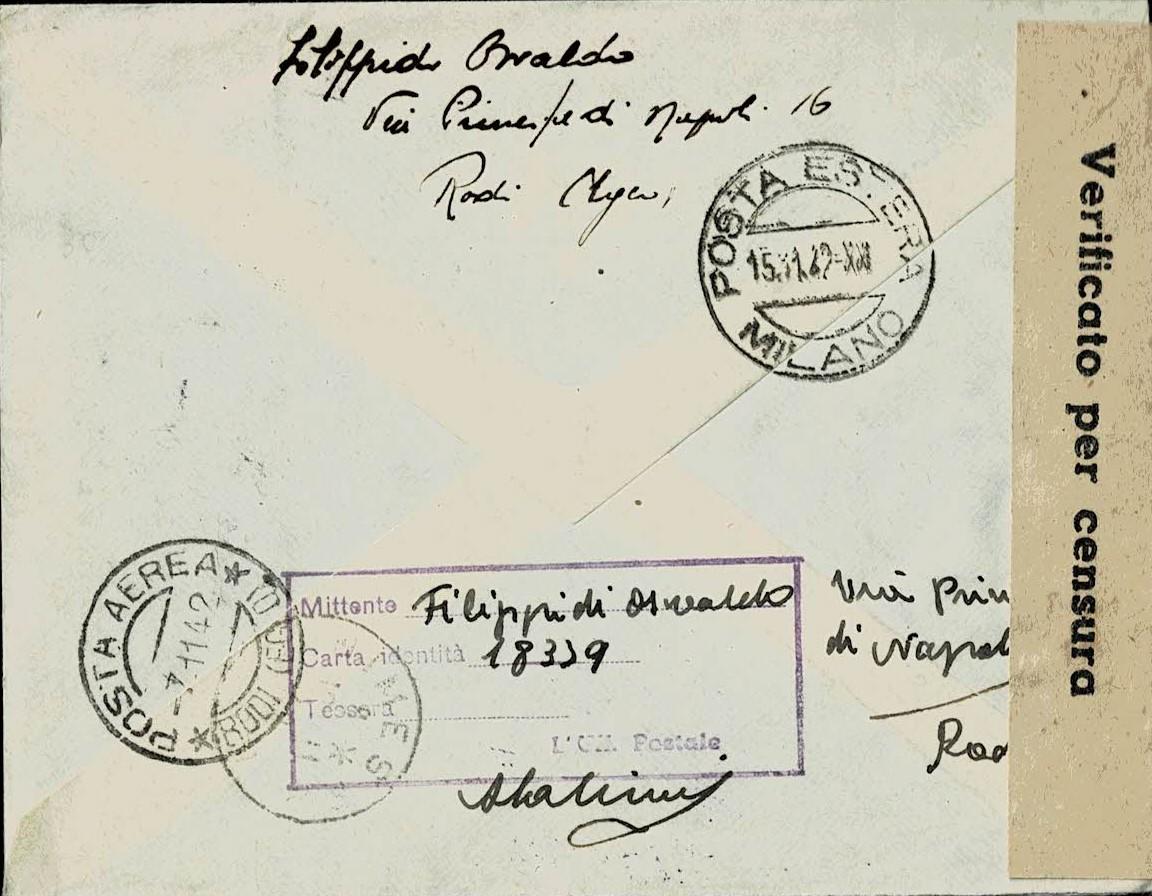 Filippidi Osvaldo
Via Principe di Napoli 16
Rodi Egeo
POSTA ESTERA
15.11.42-XXI
MILANO
Verificato per censura
POSTA AEREA
-7.11.42
RODI
Mittente Filippidi Osvaldo
Via Prin
Carta identità
di Napol
Tessera
L'Uff. Postale
Rod